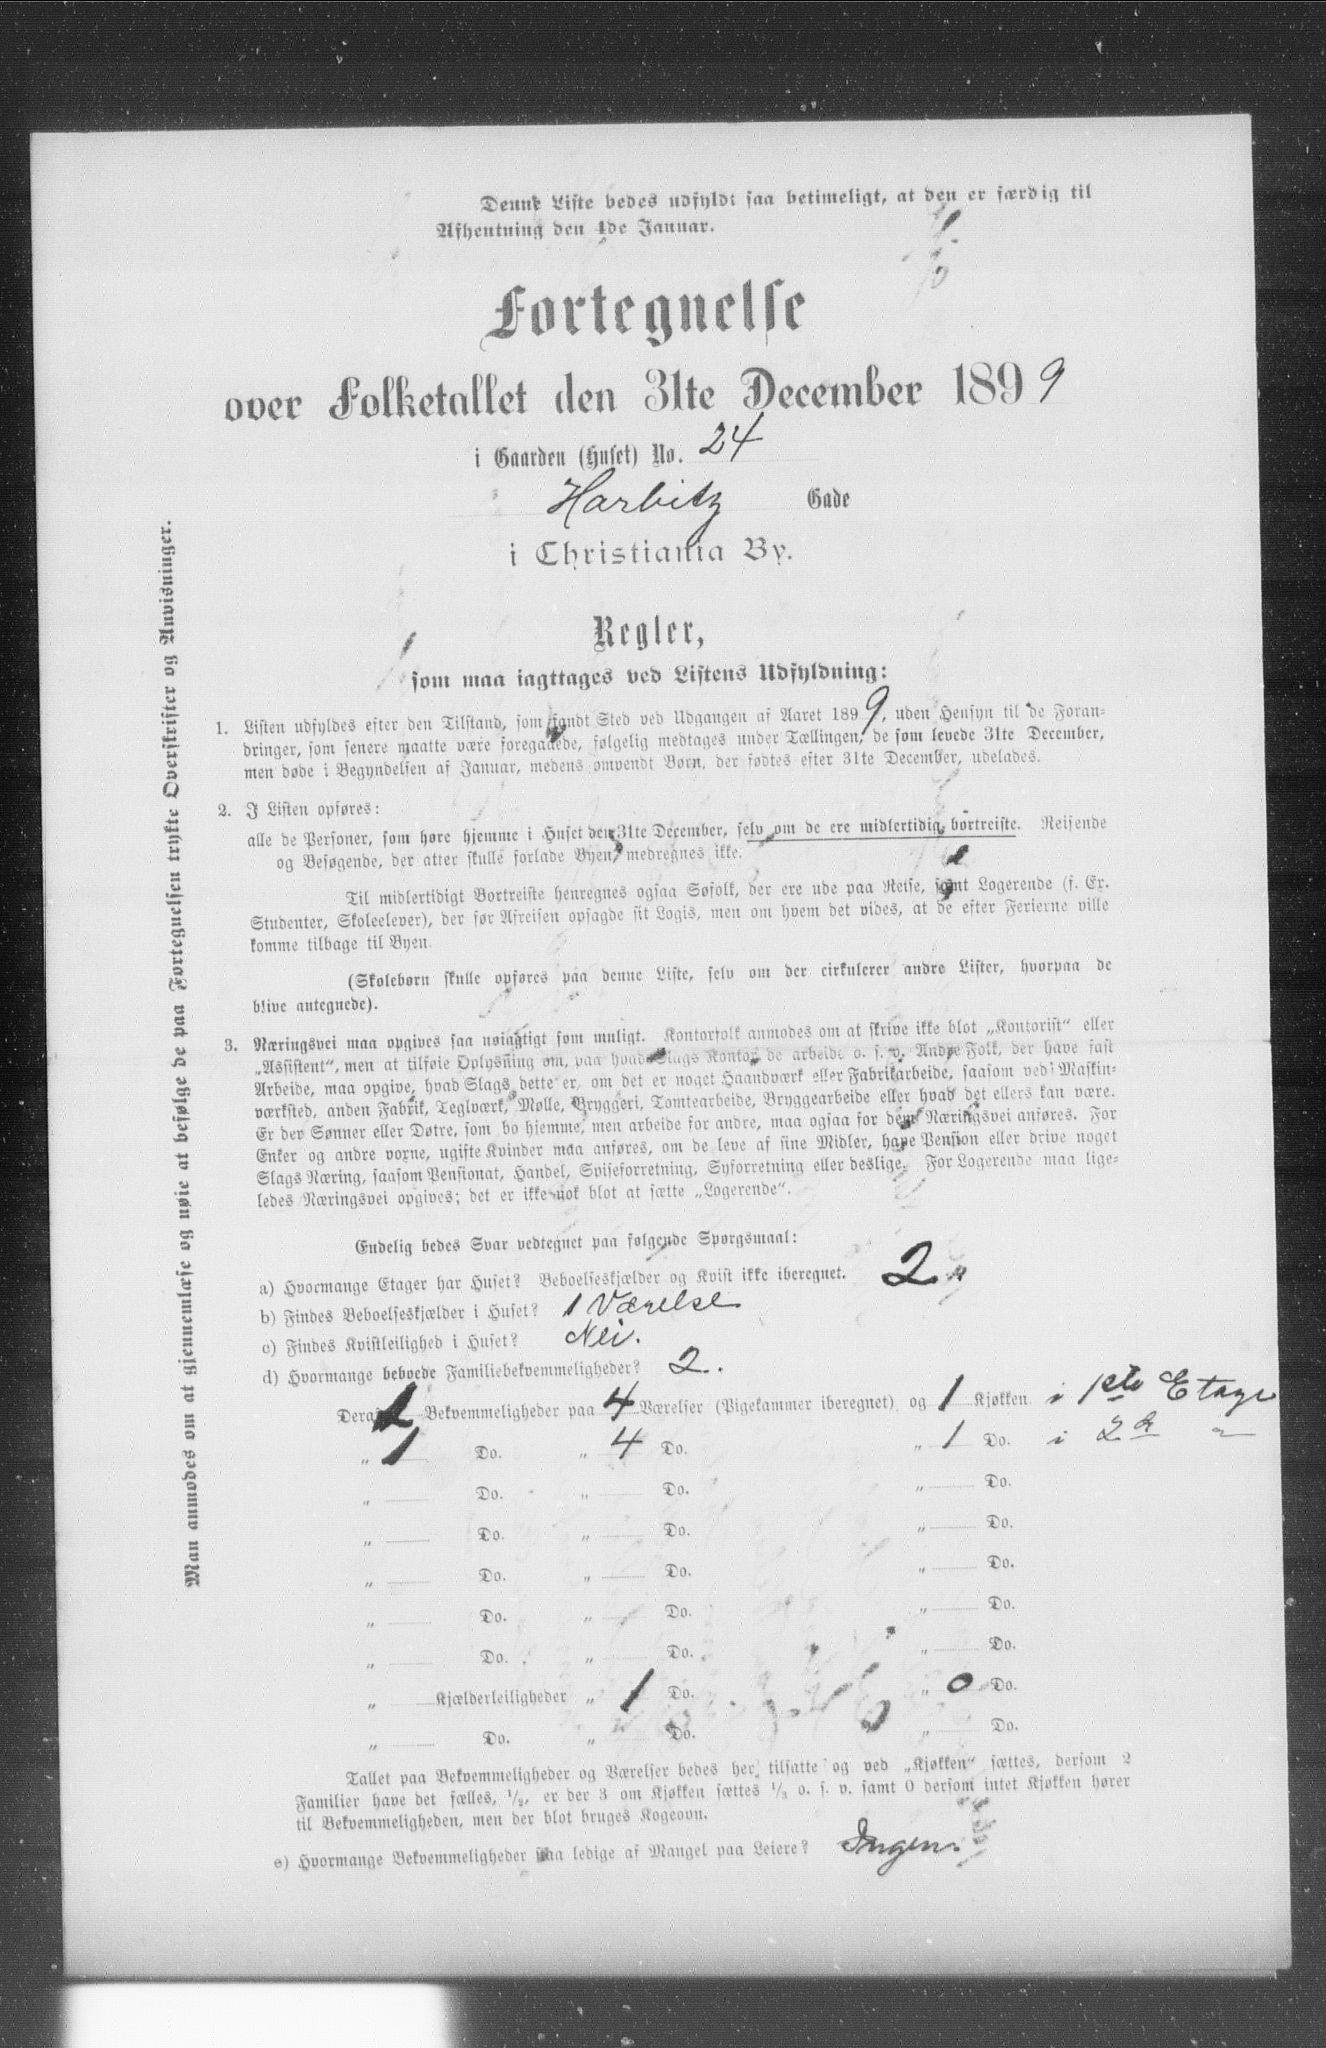 Denne Liste bedes udfyldt saa betimeligt, at den er færdig til
Afhentning den 1de Januar.
Fortegnelse
over Folketallet den 31te December 1899
i Gaarden (Huset) No. 24
Harbitz Gade
i Christiania By.
Regler,
som maa iagttages ved Listens Udfyldning:
1. Listen udfyldes efter den Tilstand, som fandt Sted ved Udgangen af Aaret 1899, uden Hensyn til de Foran-
dringer, som senere maatte være foregaaede, følgelig medtages under Tællingen, de som levede 31te December,
men døde i Begyndelsen af Januar, medens omvendt Børn, der fødtes efter 31te December, udelades.
2. I Listen opføres:
alle de Personer, som høre hjemme i Huset den 31te December, selv om de ere midlertidig bortreiste. Reisende
og Besøgende, der atter skulle forlade Byen, medregnes ikke.
Til midlertidigt Bortreiste henregnes ogsaa Søfolk, der ere ude paa Reise, samt Logerende (f. Ex.
Studenter, Skoleelever), der før Afreisen opsagde sit Logis, men om hvem det vides, at de efter Ferierne ville
komme tilbage til Byen.
(Skolebørn skulle opføres paa denne Liste, selv om der cirkulerer andre Lister, hvorpaa de
blive antegnede).
3. Næringsvei maa opgives saa nøiagtigt som muligt. Kontorfolk anmodes om at skrive ikke blot „Kontorist“ eller
„Assistent“, men at tilføie Oplysning om, paa hvad Slags Kontor de arbeide o. s. v. Andre Folk, der have fast
Arbeide, maa opgive, hvad Slags dette er, om det er noget Haandværk eller Fabrikarbeide, saasom ved Maskin-
værksted, anden Fabrik, Teglværk, Mølle, Bryggeri, Tomtearbeide, Bryggearbeide eller hvad det ellers kan være.
Er der Sønner eller Døtre, som bo hjemme, men arbeide for andre, maa ogsaa for dem Næringsvei anføres. For
Enker og andre voxne, ugifte Kvinder maa anføres, om de leve af sine Midler, have Pension eller drive noget
Slags Næring, saasom Pensionat, Handel, Spiseforretning, Syforretning eller deslige. For Logerende maa lige-
ledes Næringsvei opgives; det er ikke nok blot at sætte „Logerende“.
Endelig bedes Svar vedtegnet paa følgende Spørgsmaal:
a) Hvormange Etager har Huset? Beboelseskjælder og Kvist ikke iberegnet. 2
b) Findes Beboelseskjælder i Huset? 1 Værelse
c) Findes Kvistleilighed i Huset? Nei.
d) Hvormange beboede Familiebekvemmeligheder? 2.
Deraf 1 Bekvemmeligheder paa 4 Værelser (Pigekammer iberegnet) og 1 Kjøkken i 1ste Etage
„ 1 Do. „ 4 Do. „ 1 Do. i 2d „
„ Do. „ Do. „ Do.
„ Do. „ Do. „ Do.
„ Do. „ Do. „ Do.
„ Do. „ Do. „ Do.
„ Do. „ Do. „ Do.
„ Kjælderleiligheder „ 1 Do. „ 0 Do.
„ Do. „ Do. „ Do.
Tallet paa Bekvemmeligheder og Værelser bedes her tilsatte og ved „Kjøkken“ sættes, dersom 2
Familier have det fælles, 1/2, er der 3 om Kjøkken sættes 1/3 o. s. v. samt 0 dersom intet Kjøkken hører
til Bekvemmeligheden, men der blot bruges Kogeovn.
e) Hvormange Bekvemmeligheder staa ledige af Mangel paa Leiere? Ingen.
Man anmodes om at gjennemlæse og nøie at befølge de paa Fortegnelsen trykte Overskrifter og Anvisninger.